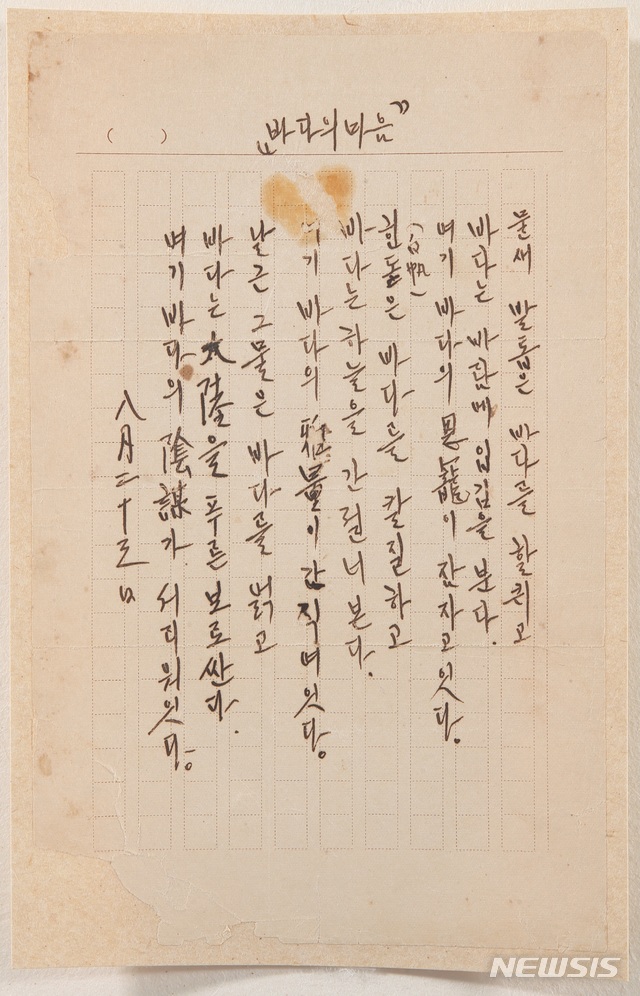 ( )
„바다의마음”
물새 발톱은 바다를 할퀴고
바다는 바람에 입김을 분다.
여기 바다의 恩寵이 잠자고잇다.
흰돛은 바다를 칼질하고
(白帆)
바다는하늘을 간질너본다.
여기 바다의 雅量이 간직여잇다。
낡근 그물은 바다를 얽고
바다는 大陸을 푸른 보로싼다.
여기 바다의 陰謀가 서리워잇다。
八月二十三日
NEWSIS